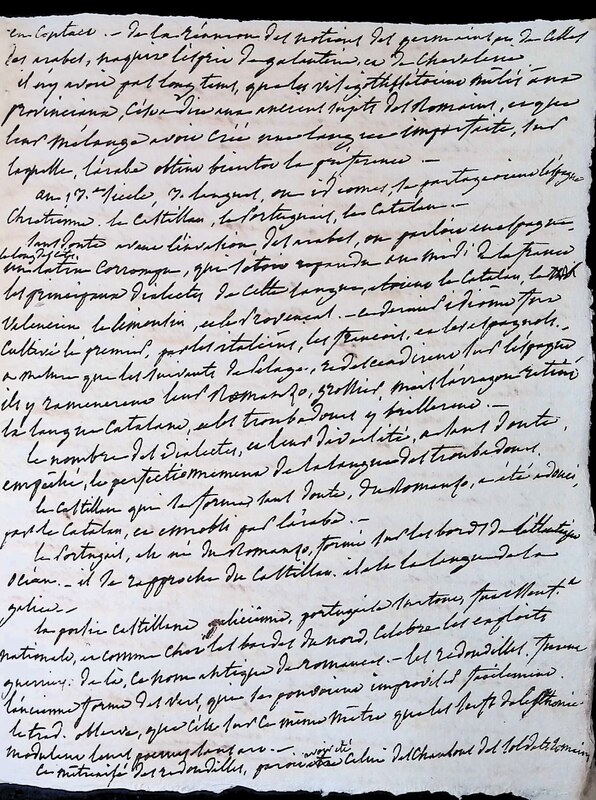 en Captacs. - de la réunion des notions des germains, et de celles
des arabes, naquire l'esprit de galanterie, et de chevalerie.
il n'y avoit pas longtems, que les visigoths s'étoient mêlés aux
provinciaux, c'est à dire aux anciens sujets des Romains, et que
leur mélange avoit créé une langue imparfaite, sur
laquelle, l'arabe obtint bientot la préférence. -
au 13.me siècle, 3 langues, ou idiomes, se partageoient l'espagne
Chrétienne. le Castillan, le Portuguais, le Catalan. -
sans doute avant l'invasion des arabes, on parloit en espagne
un latin corrompu, qui s'étoit répandu au midi de la france
les principaux dialectes de cette langue, étoient le Catalan, le
Valencien le limousin, et le Provençal. - ce dernier idiôme fut
cultivé le premier, par les italiens, les françois, et les espagnols. -
a mesure que les suivants de Pelage, redescendirent sur l'espagne
ils y ramenerent leur Romanzo, grossier, mais l'arragon retint
la langue Catalane, et les troubadours y brillerent. -
le nombre des dialectes, et leur diversité, a sans doute,
empêché, le perfectionnement de la langue des troubadours.
le Castillan qui se forma sans doute, du Romanzo, a été adouci,
par le Catalan, et ennobli par l'arabe. -
le Portugais, est né du Romanzo, formé sur les bords de l'atlantique
océan. - il se rapproche du Castillan. il a été la langue de la
galice. -
la poésie castillane galicienne, portugaise surtout, fut essent.lt
nationale, et comme chez les bardes du nord, célébra les exploits
guerriers: de là, ce nom antique de romances. - les redondilles, furent
l'ancienne forme des vers, qui se pouvoient improviser facilement.
le trad. observe, que c'est sur ce même mètre que les serfs de l'esthonie
modulent leurs poemes barbare. -
ce mètre usité des redondilles, paroit avoir été celui des chansons des soldats romains